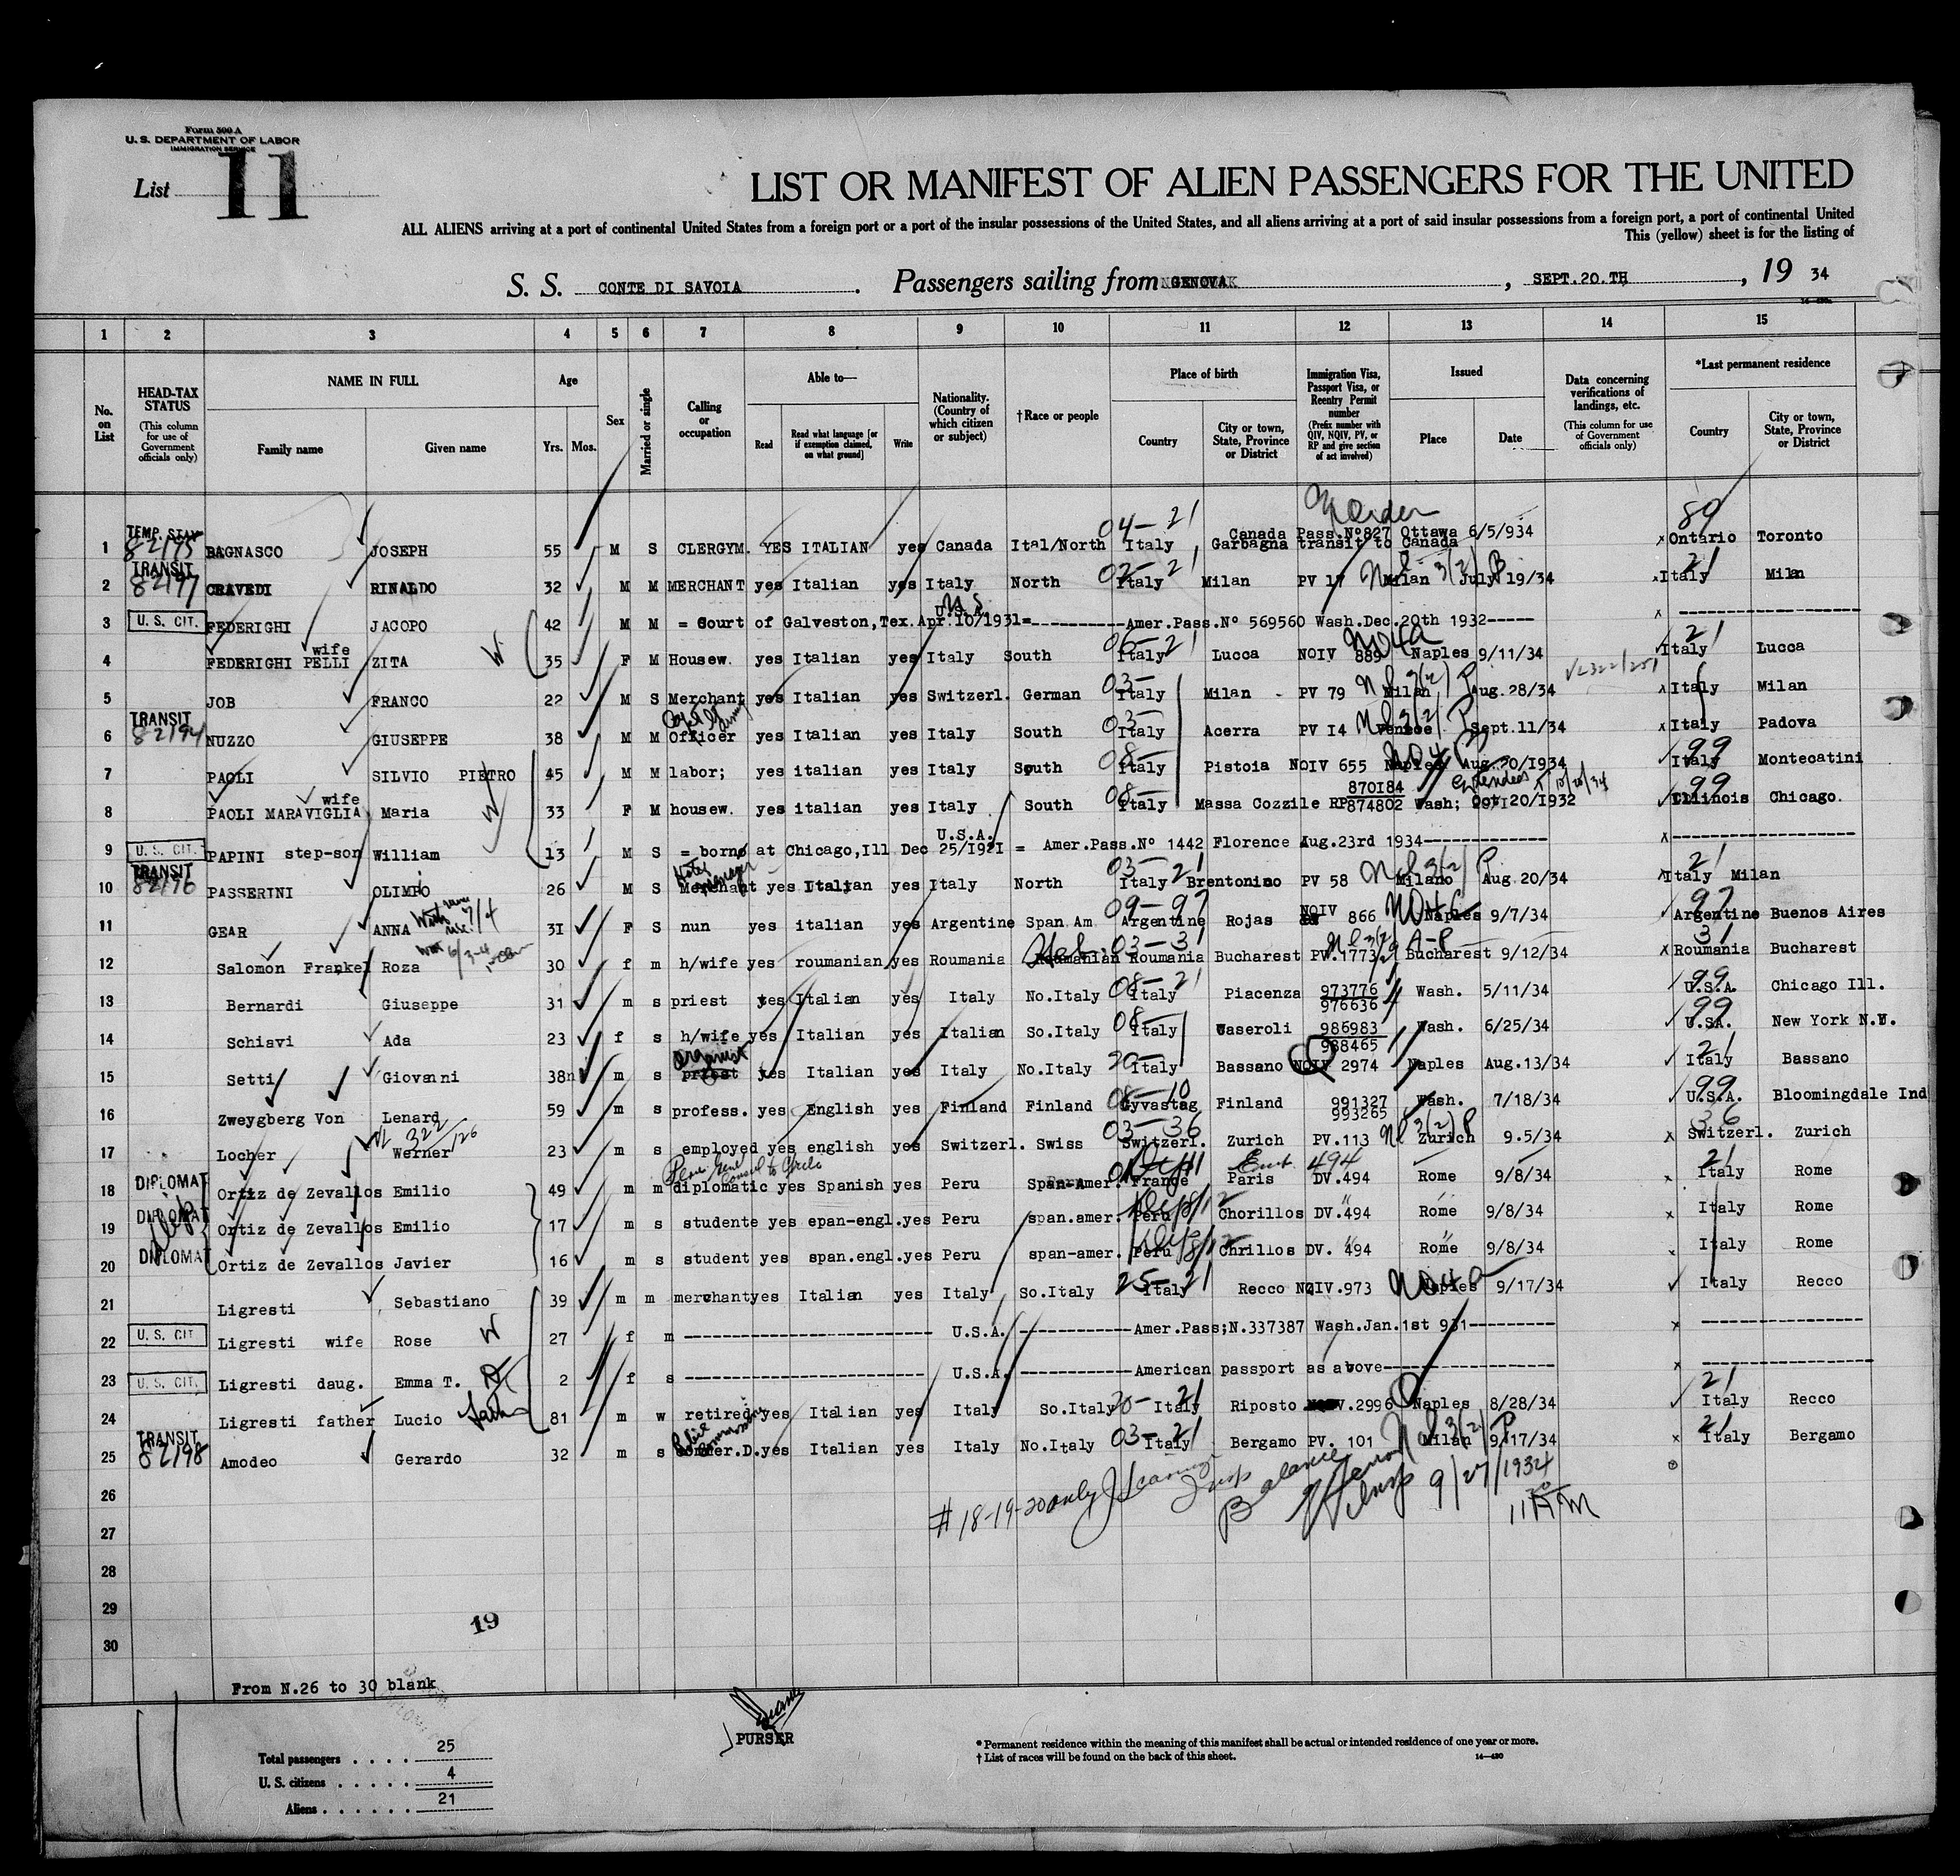 Form 500 A
U. S. DEPARTMENT OF LABOR
IMMIGRATION SERVICE
List 11
LIST OR MANIFEST OF ALIEN PASSENGERS FOR THE UNITED
ALL ALIENS arriving at a port of continental United States from a foreign port or a port of the insular possessions of the United States, and all aliens arriving at a port of said insular possessions from a foreign port, a port of continental United
This (yellow) sheet is for the listing of
S. S. CONTE DI SAVOIA. Passengers sailing from GENOVA, SEPT.20.TH, 19 34
1 2 3 4 5 6 7 8 9 10 11 12 13 14 15
No. on List
HEAD-TAX STATUS (This column for use of Government officials only)
NAME IN FULL Family name Given name
Age Yrs. Mos.
Sex
Married or single
Calling or occupation
Able to— Read Read what language [or if exemption claimed, on what ground] Write
Nationality. (Country of which citizen or subject)
†Race or people
Place of birth Country City or town, State, Province or District
Immigration Visa, Passport Visa, or Reentry Permit number (Prefix number with QIV, NQIV, PV, or RP and give section of act involved)
Issued Place Date
Data concerning verifications of landings, etc. (This column for use of Government officials only)
*Last permanent residence Country City or town, State, Province or District
1 TEMP. STAY 82195 BAGNASCO JOSEPH 55 M S CLERGYM. YES ITALIAN yes Canada Ital/North 04-21 Italy Garbagna transit to Canada Canada Pass.Nº827 Ottawa 6/5/934 x 89 Ontario Toronto
2 TRANSIT 82197 CRAVEDI RINALDO 32 M M MERCHANT yes Italian yes Italy North 02-21 Italy Milan PV 17 Milan 3(2) P July 19/34 x 21 Italy Milan
3 U. S. CIT. FEDERIGHI JACOPO 42 M M = Court of Galveston,Tex.Apr.10/1931= U.S.A. Amer.Pass.Nº 569560 Wash.Dec.20th 1932 x
4 FEDERIGHI PELLI wife ZITA W 35 F M Housew. yes Italian yes Italy South 06-21 Italy Lucca NOIV 889 Naples 9/11/34 21 Italy Lucca
5 JOB FRANCO 22 M S Merchant yes Italian yes Switzerl. German 03- Italy Milan - PV 79 Milan P Aug.28/34 x Italy Milan
6 TRANSIT 82194 NUZZO GIUSEPPE 38 M M Officer yes Italian yes Italy South 03- Italy Acerra PV I4 Venice Sept.11/34 x Italy Padova
7 PAOLI SILVIO PIETRO 45 M M labor; yes italian yes Italy South 08- Italy Pistoia NOIV 655 Naples Aug.20/1934 99 Italy Montecatini
8 PAOLI MARAVIGLIA wife Maria W 33 F M housew. yes italian yes Italy South 08- Italy Massa Cozzile RP 870184 874802 Wash; Oct 20/1932 Extended 99 Illinois Chicago.
9 U. S. CIT. PAPINI step-son William 13 M S = borne at Chicago,Ill Dec 25/1921 = U.S.A. Amer.Pass.Nº 1442 Florence Aug.23rd 1934 x
10 TRANSIT 82196 PASSERINI OLIMPO 26 M S Merchant Manager yes Italian yes Italy North 03-21 Italy Brentonino PV 58 Milano 3(2) P Aug.20/34 x 21 Italy Milan
11 GEAR ANNA 3I F S nun yes italian yes Argentine Span.Am 09-97 Argentine Rojas NOIV 866 Naples 9/7/34 97 Argentine Buenos Aires
12 Salomon Frankel Roza 30 f m h/wife yes roumanian yes Roumania Heb. Roumanian 03-31 Roumania Bucharest PV.1773 Bucharest 9/12/34 x 31 Roumania Bucharest
13 Bernardi Giuseppe 31 m s priest yes Italian yes Italy No.Italy 08-21 Italy Piacenza 973776 976636 Wash. 5/11/34 99 U.S.A. Chicago Ill.
14 Schiavi Ada 23 f s h/wife yes Italian yes Italian So.Italy 08- Italy Caseroli 986983 988465 Wash. 6/25/34 99 U.SA. New York N.Y.
15 Setti Giovanni 38 m s priest organist yes Italian yes Italy No.Italy 20- Italy Bassano NQIV 2974 Naples Aug.13/34 21 Italy Bassano
16 Zweygberg Von Lenard 59 m s profess. yes English yes Finland Finland 08-10 Gyvastag Finland 991327 993265 Wash. 7/18/34 99 U.S.A. Bloomingdale Ind
17 Locher Werner 322/126 23 m s employed yes english yes Switzerl. Swiss 03-36 Switzerl. Zurich PV.113 Zurich 3(2) P 9.5/34 x 36 Switzerl. Zurich
18 DIPLOMAT Ortiz de Zevallos Emilio 49 m m diplomatic yes Spanish yes Peru Span-Amer. France Paris DV.494 Rome 9/8/34 x 21 Italy Rome
19 DIPLOMAT Ortiz de Zevallos Emilio 17 m s studente yes epan-engl.yes Peru span.amer. Peru Chorillos DV.494 Rome 9/8/34 x Italy Rome
20 DIPLOMAT Ortiz de Zevallos Javier 16 m s student yes span.engl.yes Peru span-amer. Peru Chrillos DV. 494 Rome 9/8/34 Italy Rome
21 Ligresti Sebastiano 39 m m merchant yes Italian yes Italy So.Italy 25-21 Italy Recco NQIV.973 Naples 9/17/34 Italy Recco
22 U. S. CIT. Ligresti wife Rose W 27 f m U.S.A. Amer.Pass;N.337387 Wash.Jan.1st 931 x
23 U. S. CIT. Ligresti daug. Emma T. 2 f s U.S.A. American passport as above x
24 Ligresti father Lucio 81 m w retired yes Italian yes Italy So.Italy 20-21 Italy Riposto 2996 Naples 8/28/34 21 Italy Recco
25 TRANSIT 82198 Amodeo Gerardo 32 m s yes Italian yes Italy No.Italy 03-21 Italy Bergamo PV. 101 Milan 3(2) P 9/17/34 x 21 Italy Bergamo
26
# 18-19-20 only
Balance
Insp 9/27/1934
27
11 AM
28
29
19
30
From N.26 to 30 blank
11
PURSER
Total passengers . . . . 25
U. S. citizens . . . . . 4
Aliens . . . . . . 21
* Permanent residence within the meaning of this manifest shall be actual or intended residence of one year or more.
† List of races will be found on the back of this sheet. 14—430